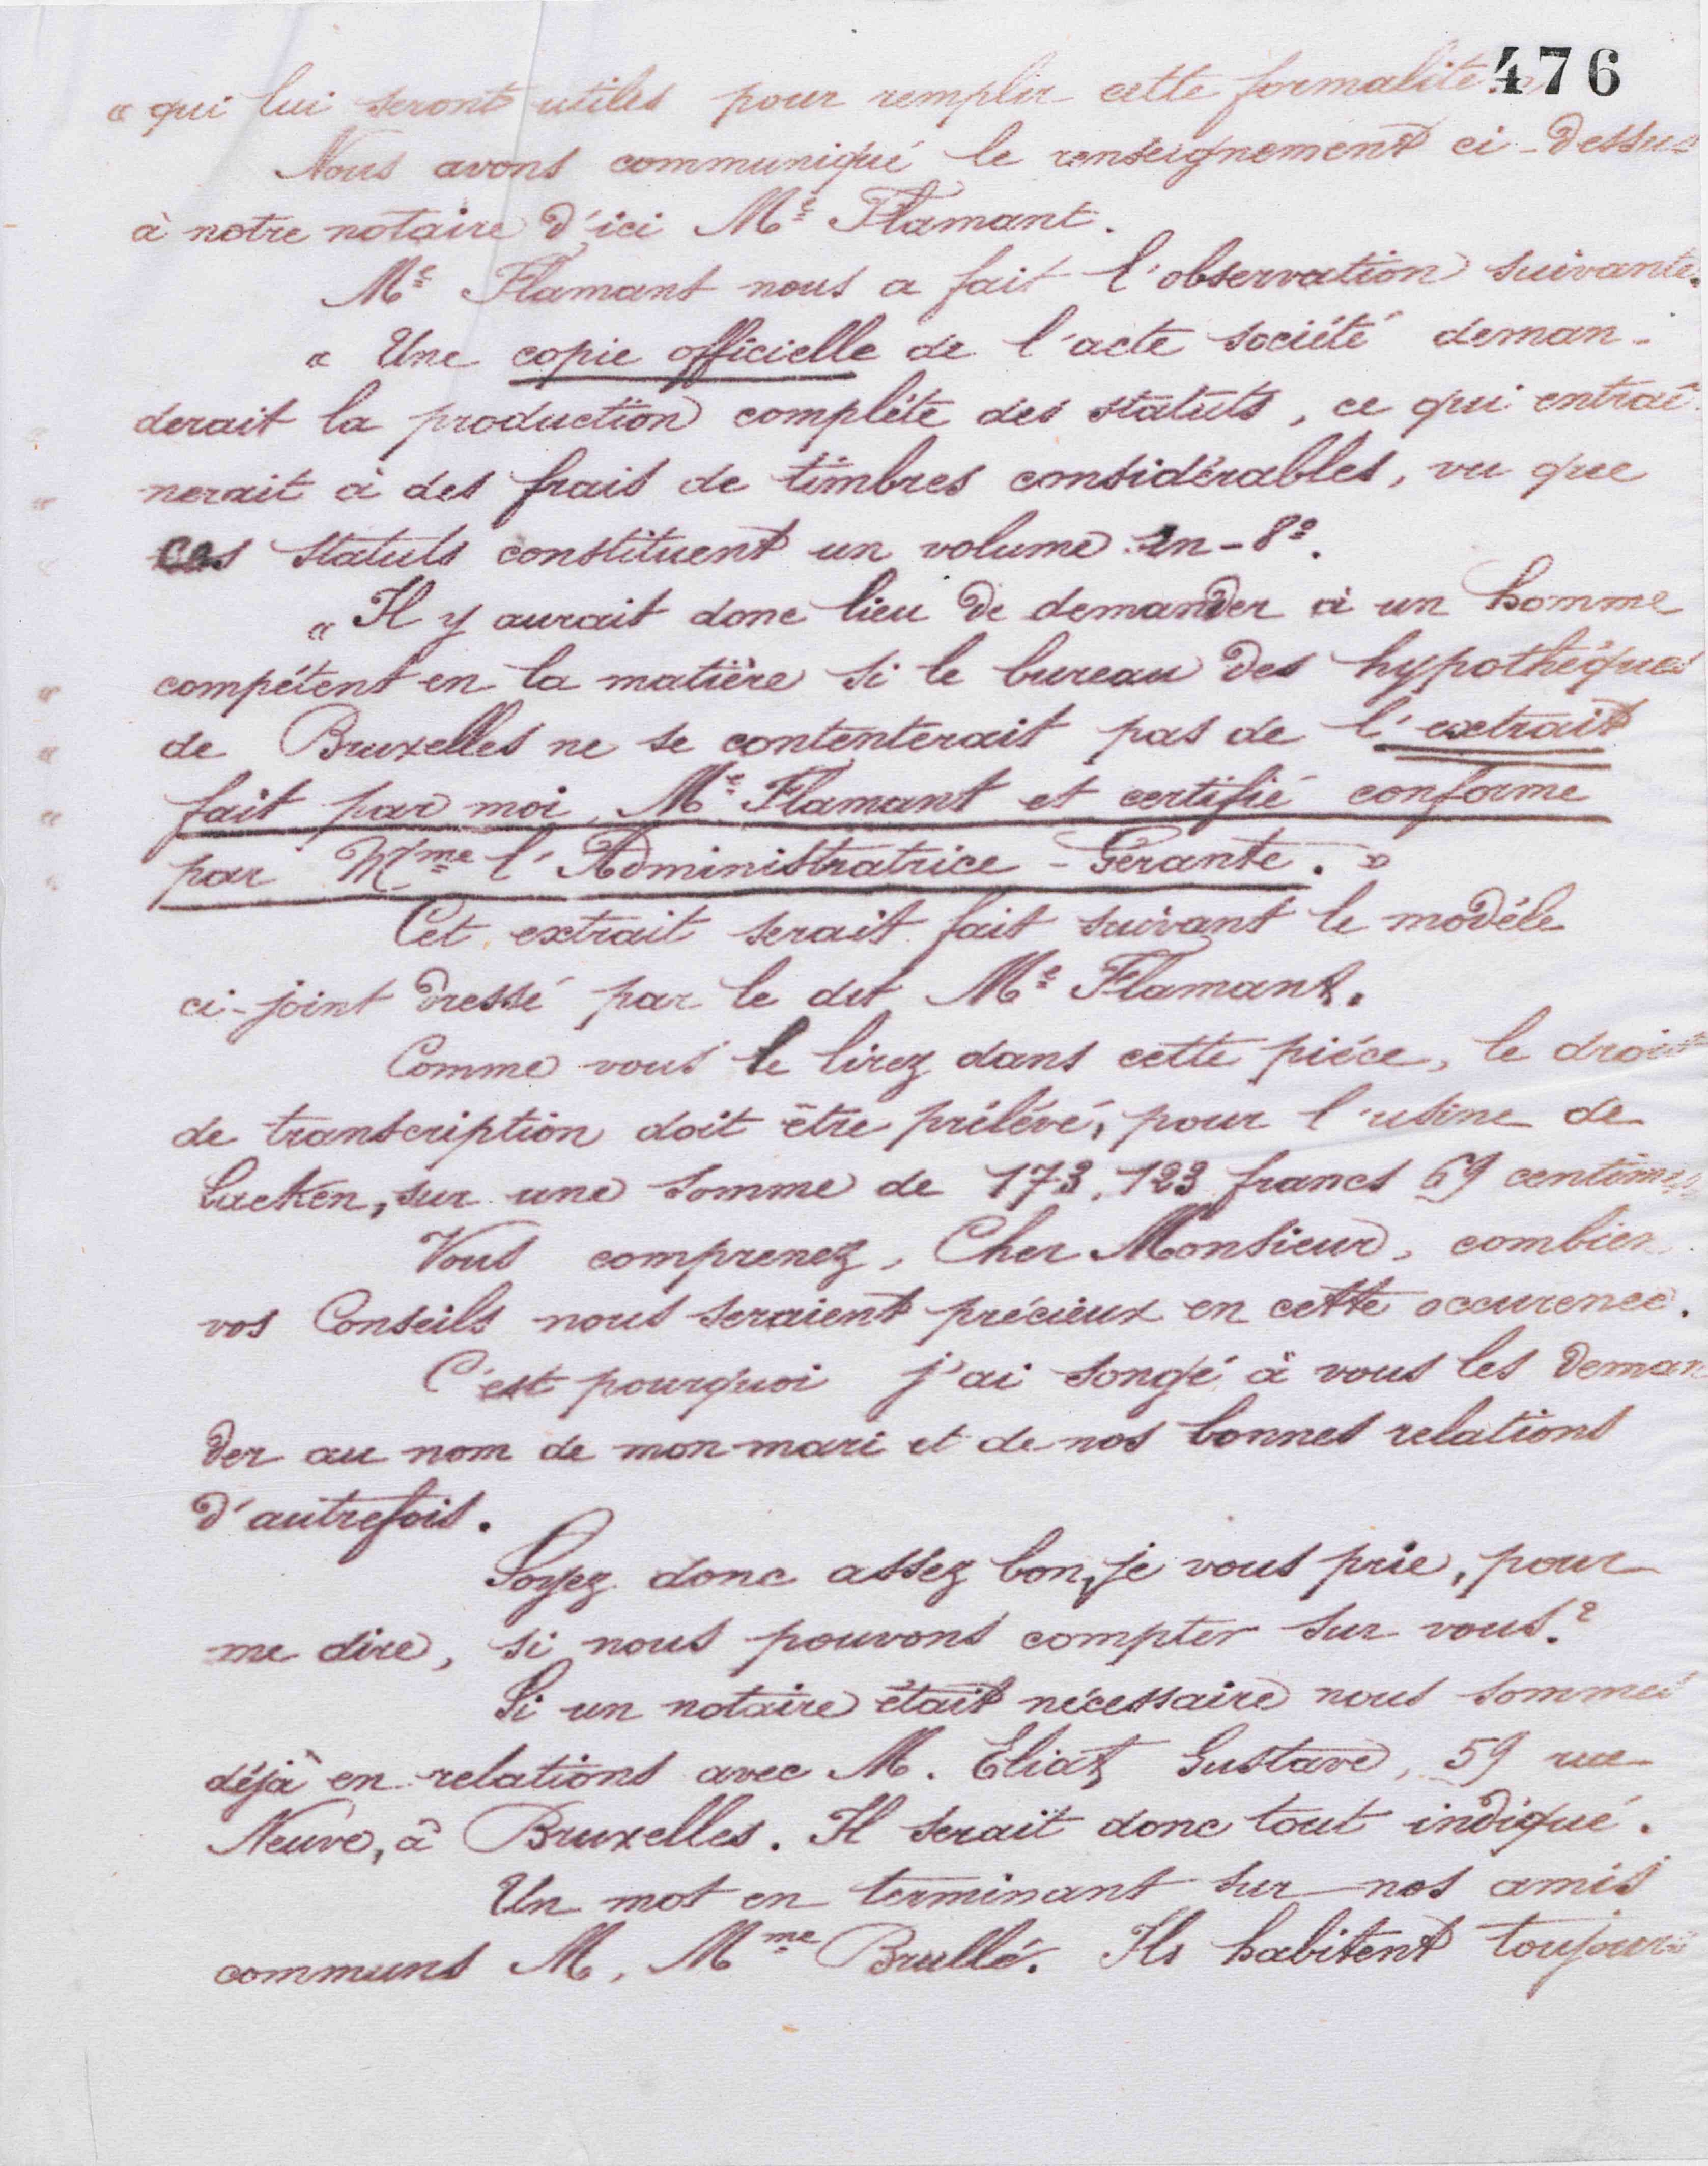 476
« qui lui seront utiles pour remplir cette formalité. »
Nous avons communiqué le renseignement ci-dessus
à notre notaire d'ici Me Flamant.
Me Flamant nous a fait l'observation suivante.
« Une copie officielle de l'acte société deman-
derait la production complète des statuts, ce qui entraî-
nerait à des frais de timbres considérables, vu que
ces statuts constituent un volume in-8o.
« Il y aurait donc lieu de demander à un homme
compétent en la matière si le bureau des hypothèques
de Bruxelles ne se contenterait pas de l'extrait
fait par moi, Me Flamant et certifié conforme
par Mme l'Administratrice-Gérante. »
Cet extrait serait fait suivant le modèle
ci-joint dressé par le dit Me Flamant.
Comme vous le lirez dans cette pièce, le droit
de transcription doit être prélévé, pour l'usine de
Laeken, sur une somme de 173.123 francs 69 centimes
Vous comprenez, Cher Monsieur, combien
vos Conseils nous seraient précieux en cette occurence.
C'est pourquoi j'ai songé à vous les deman
der au nom de mon mari et de nos bonnes relations
d'autrefois.
Soyez donc assez bon, je vous prie, pour
me dire, si nous pouvons compter sur vous?
Si un notaire était nécessaire nous sommes
déjà en relations avec M. Eliat Gustave, 59 rue
Neuve, à Bruxelles. Il serait donc tout indiqué.
Un mot en terminant sur nos amis
communs M. Mme Brullé. Ils habitent toujours